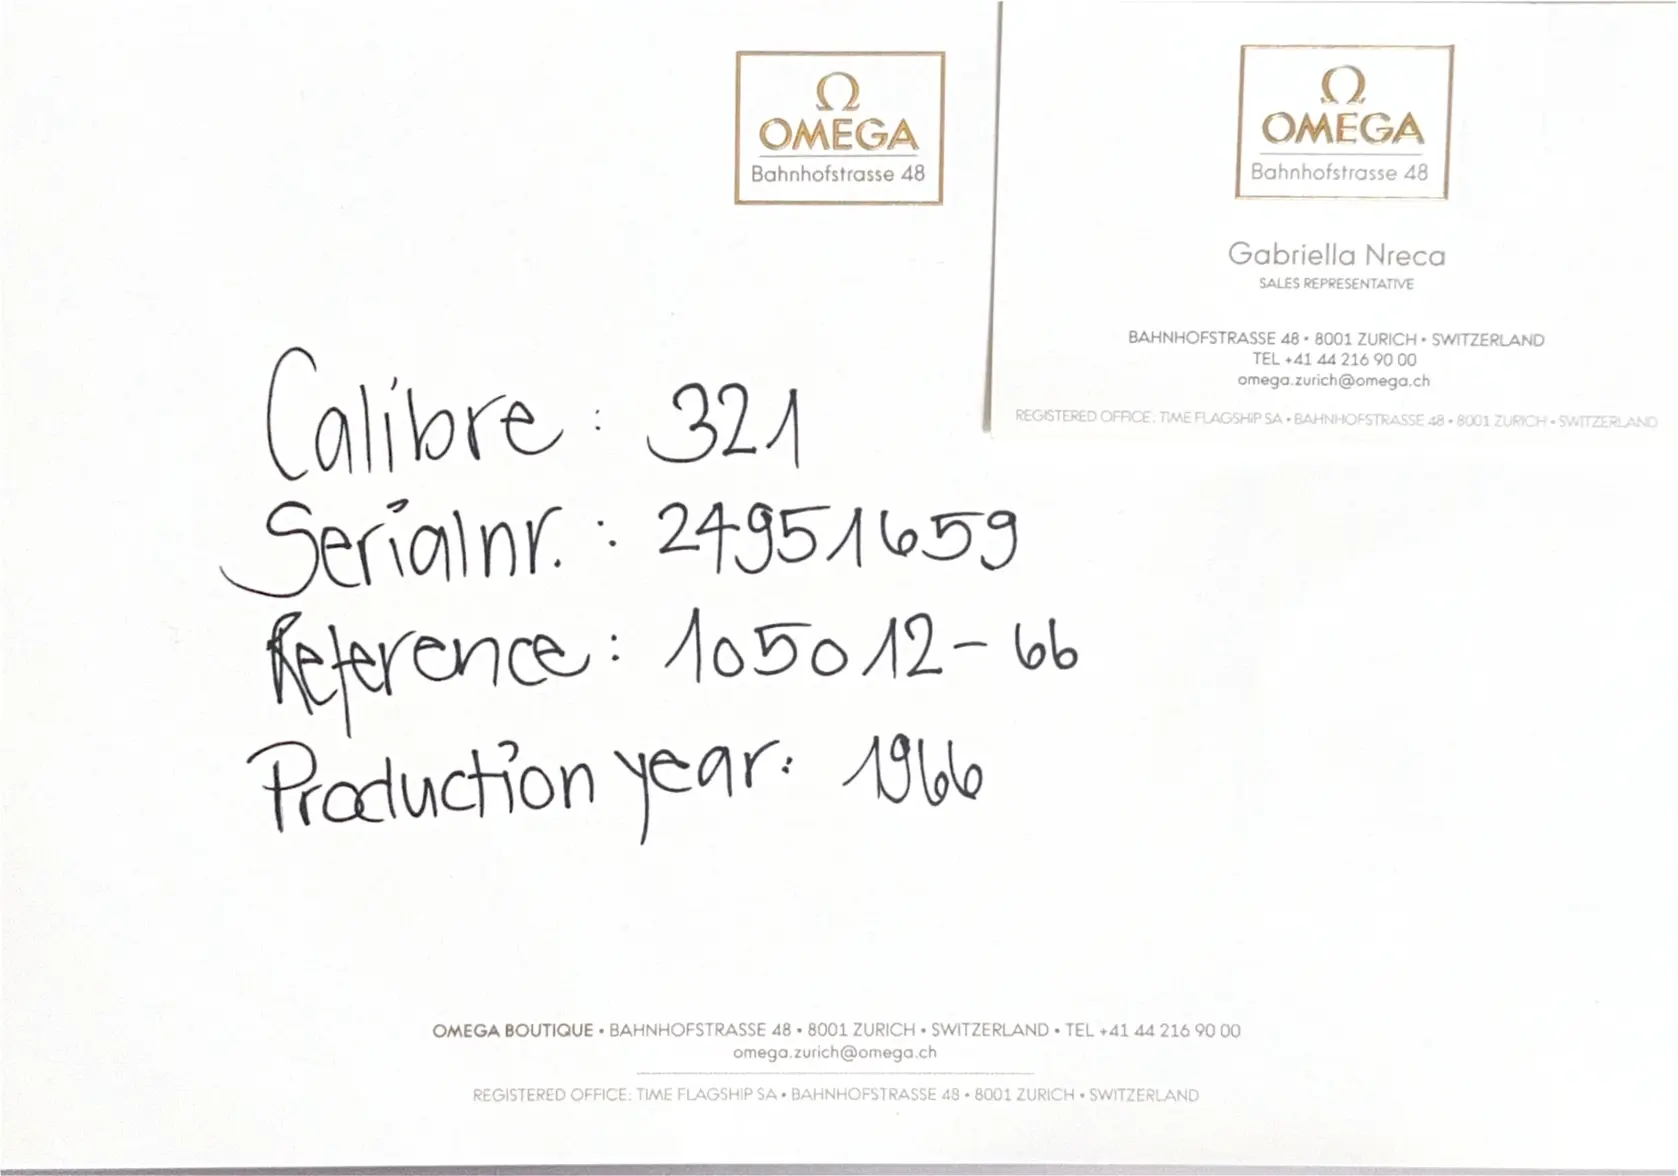 Ω
OMEGA
Bahnhofstrasse 48
Ω
OMEGA
Bahnhofstrasse 48
Gabriella Nreca
SALES REPRESENTATIVE
BAHNHOFSTRASSE 48 • 8001 ZURICH • SWITZERLAND
TEL +41 44 216 90 00
omega.zurich@omega.ch
REGISTERED OFFICE: TIME FLAGSHIP SA • BAHNHOFSTRASSE 48 • 8001 ZURICH • SWITZERLAND
Calibre : 321
Serialnr. : 24951659
Reference : 105012-66
Production year: 1966
OMEGA BOUTIQUE • BAHNHOFSTRASSE 48 • 8001 ZURICH • SWITZERLAND • TEL +41 44 216 90 00
omega.zurich@omega.ch
REGISTERED OFFICE: TIME FLAGSHIP SA • BAHNHOFSTRASSE 48 • 8001 ZURICH • SWITZERLAND